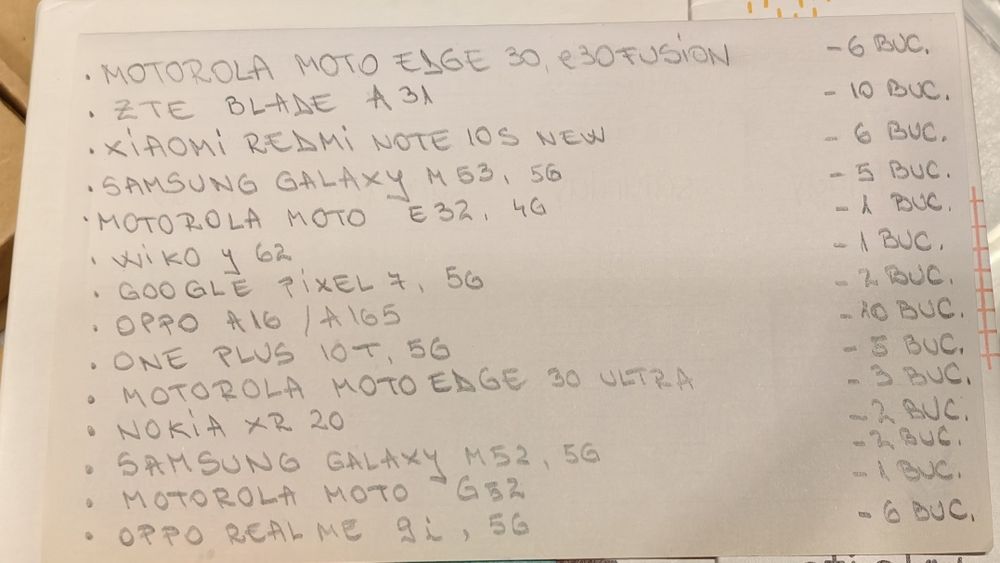 . MOTOROLA MOTO EDGE 30, e30FUSION - 6 BUC.
. ZTE BLADE A31 - 10 BUC.
. XIAOMI REDMI NOTE 10S NEW - 6 BUC.
. SAMSUNG GALAXY M53, 5G - 5 BUC.
. MOTOROLA MOTO E32, 4G - 1 BUC.
. WIKO Y 62 - 1 BUC.
. GOOGLE PIXEL 7, 5G - 2 BUC.
. OPPO A16 / A16S - 10 BUC.
. ONE PLUS 10T, 5G - 5 BUC.
. MOTOROLA MOTO EDGE 30 ULTRA - 3 BUC.
. NOKIA XR 20 - 2 BUC.
. SAMSUNG GALAXY M52, 5G - 2 BUC.
. MOTOROLA MOTO G32 - 1 BUC.
. OPPO REALME 9i, 5G - 6 BUC.